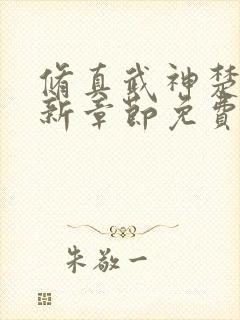 脩真武神楚
新章節免費
朱敬一